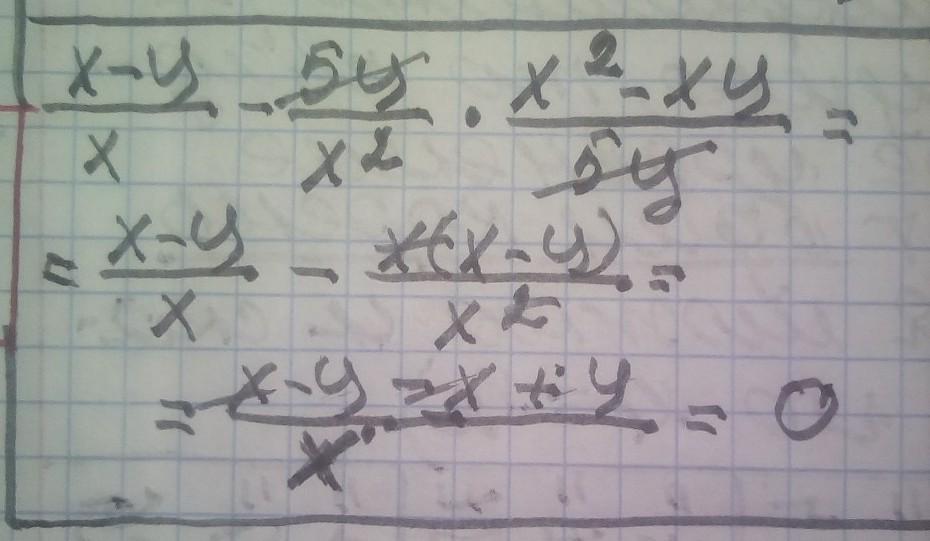 (x-y)/x - 5y/x² · (x²-xy)/5y =
= (x-y)/x - x(x-y)/x² =
= (x-y-x+y)/x = 0